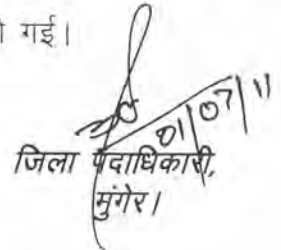 गई।
01/07/11
जिला पदाधिकारी,
मुंगेर।